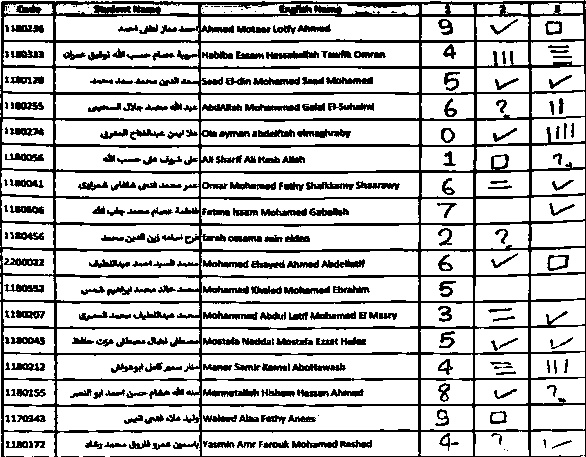 Code Student Name English Name 1 2 3
1180236 احمد معتز لطفى احمد Ahmed Motaer Lotfy Ahmed 9 ✓ □
1180333 عصام حسب الله توفيق عمران Habiba Essam Hassaballah Tawfik Omran 4 ||| ☰
1180128 سعد الدين محمد سعد محمد Saad El-din Mohamed Saad Mohamed 5 ✓ ✓
1180255 عبد الله محمد جلال السحيمى Abdallah Mohammed Galal El-Suhaimi 6 ? ||
1180274 علا ايمن عبدالفتاح المغربى Ola ayman abdelftah elmaghraby 0 ✓ ||||
1180056 على شريف على حسب الله Ali Sharif Ali Hasb Allah 1 □ ?
1180041 عمر محمد فتحى شعراوى Omar Mohamed Fathy Shaarawy 6 = ✓
1180606 فاطمة عصام محمد جاب الله Fatma Issam Mohamed Gaballah 7 ✓
1180456 فرح اسامه زين الدين محمد farah ossama zein elden 2 ?
2200022 محمد السيد احمد عبداللطيف Mohamed Elsayed Ahmed Abdellatif 6 ✓ □
1180553 محمد خالد محمد ابراهيم Mohamed Khaled Mohamed Ebrahim 5
1180207 محمد عبداللطيف محمد المصرى Mohammed Abdul Latif Mohamed El Masry 3 = ✓
1180045 مصطفى نضال مصطفى عزت حافظ Mostafa Neddal Mostafa Ezzat Hafez 5 ✓ ✓
1180212 منار سمير كامل ابوحواش Manar Samir Kamal AboHawash 4 ☰ |||
1180155 منه الله هشام حسن احمد ابو النصر Mennetallah Hisham Hassan Ahmed 8 ✓ ?
1170343 وليد علاء فتحى انيس Waleed Alaa Fathy Anees 9 □
1180172 ياسمين عمرو فاروق محمد رشاد Yasmin Amr Farouk Mohamed Rashad 4 ? ✓